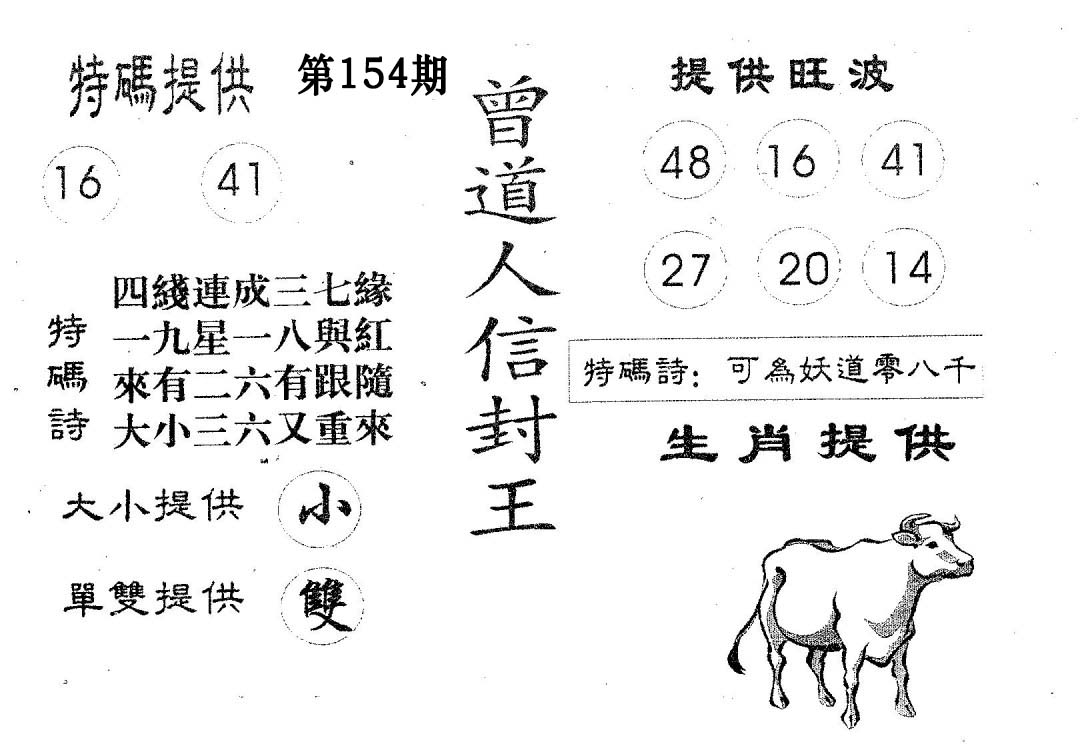 特碼提供
第154期
16 41
特碼詩
四綫連成三七緣
一九星一八與紅
來有二六有跟隨
大小三六又重來
大小提供 小
單雙提供 雙
曾道人信封王
提供旺波
48 16 41
27 20 14
特碼詩：可為妖道零八千
生肖提供